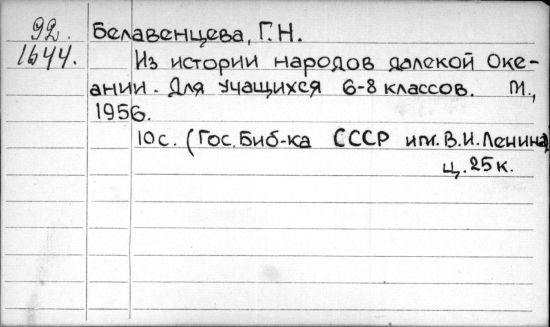 92.
1644.
Белавенцева, Г.Н.
Из истории народов далекой Оке-
ании. Для учащихся 6-8 классов. М.,
1956.
10 с. (Гос. Биб-ка СССР им. В.И. Ленина)
ц. 25 к.